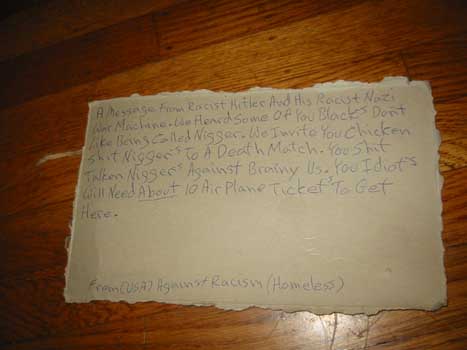 A Message From Racist Hitler And His Racist Nazi
War Machine. We Heard Some Of You Black's Don't
Like Being Called Nigger. We Invite You Chicken
Shit Nigger's To A Death Match. You Shit
Talken Nigger's Against Brainy Us. You Idiot's
Will Need About 10 Air Plane Ticket's To Get
Here.
From (USA) Against Racism (Homeless)